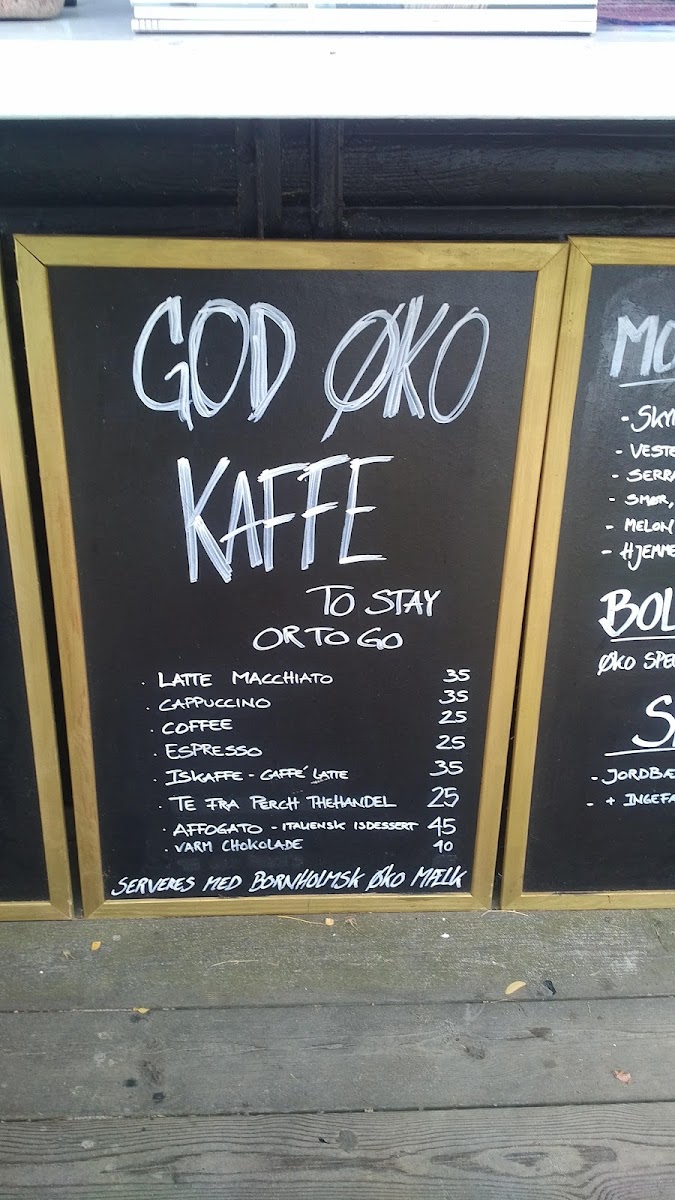 GOD ØKO
KAFFE
TO STAY
OR TO GO
· LATTE MACCHIATO 35
· CAPPUCCINO 35
· COFFEE 25
· ESPRESSO 25
· ISKAFFE - CAFFÉ LATTE 35
· TE FRA PERCH THEHANDEL 25
· AFFOGATO - ITALIENSK ISDESSERT 45
· VARM CHOKOLADE 40
SERVERES MED BORNHOLMSK ØKO MÆLK
- SMØR,
- MELON
ØKO